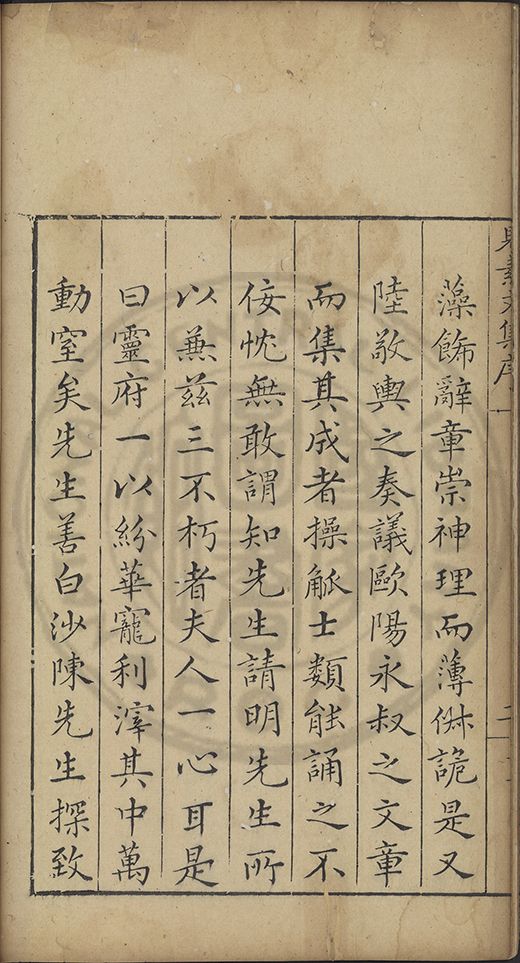 藻餙辭章崇神理而薄㑣詭是又
陸敬輿之奏議歐陽永叔之文章
而集其成者操觚士類能誦之不
佞忱無敢謂知先生請明先生所
以兼兹三不朽者夫人一心耳是
曰靈府一以紛華寵利滓其中萬
動窒矣先生善白沙陳先生探致